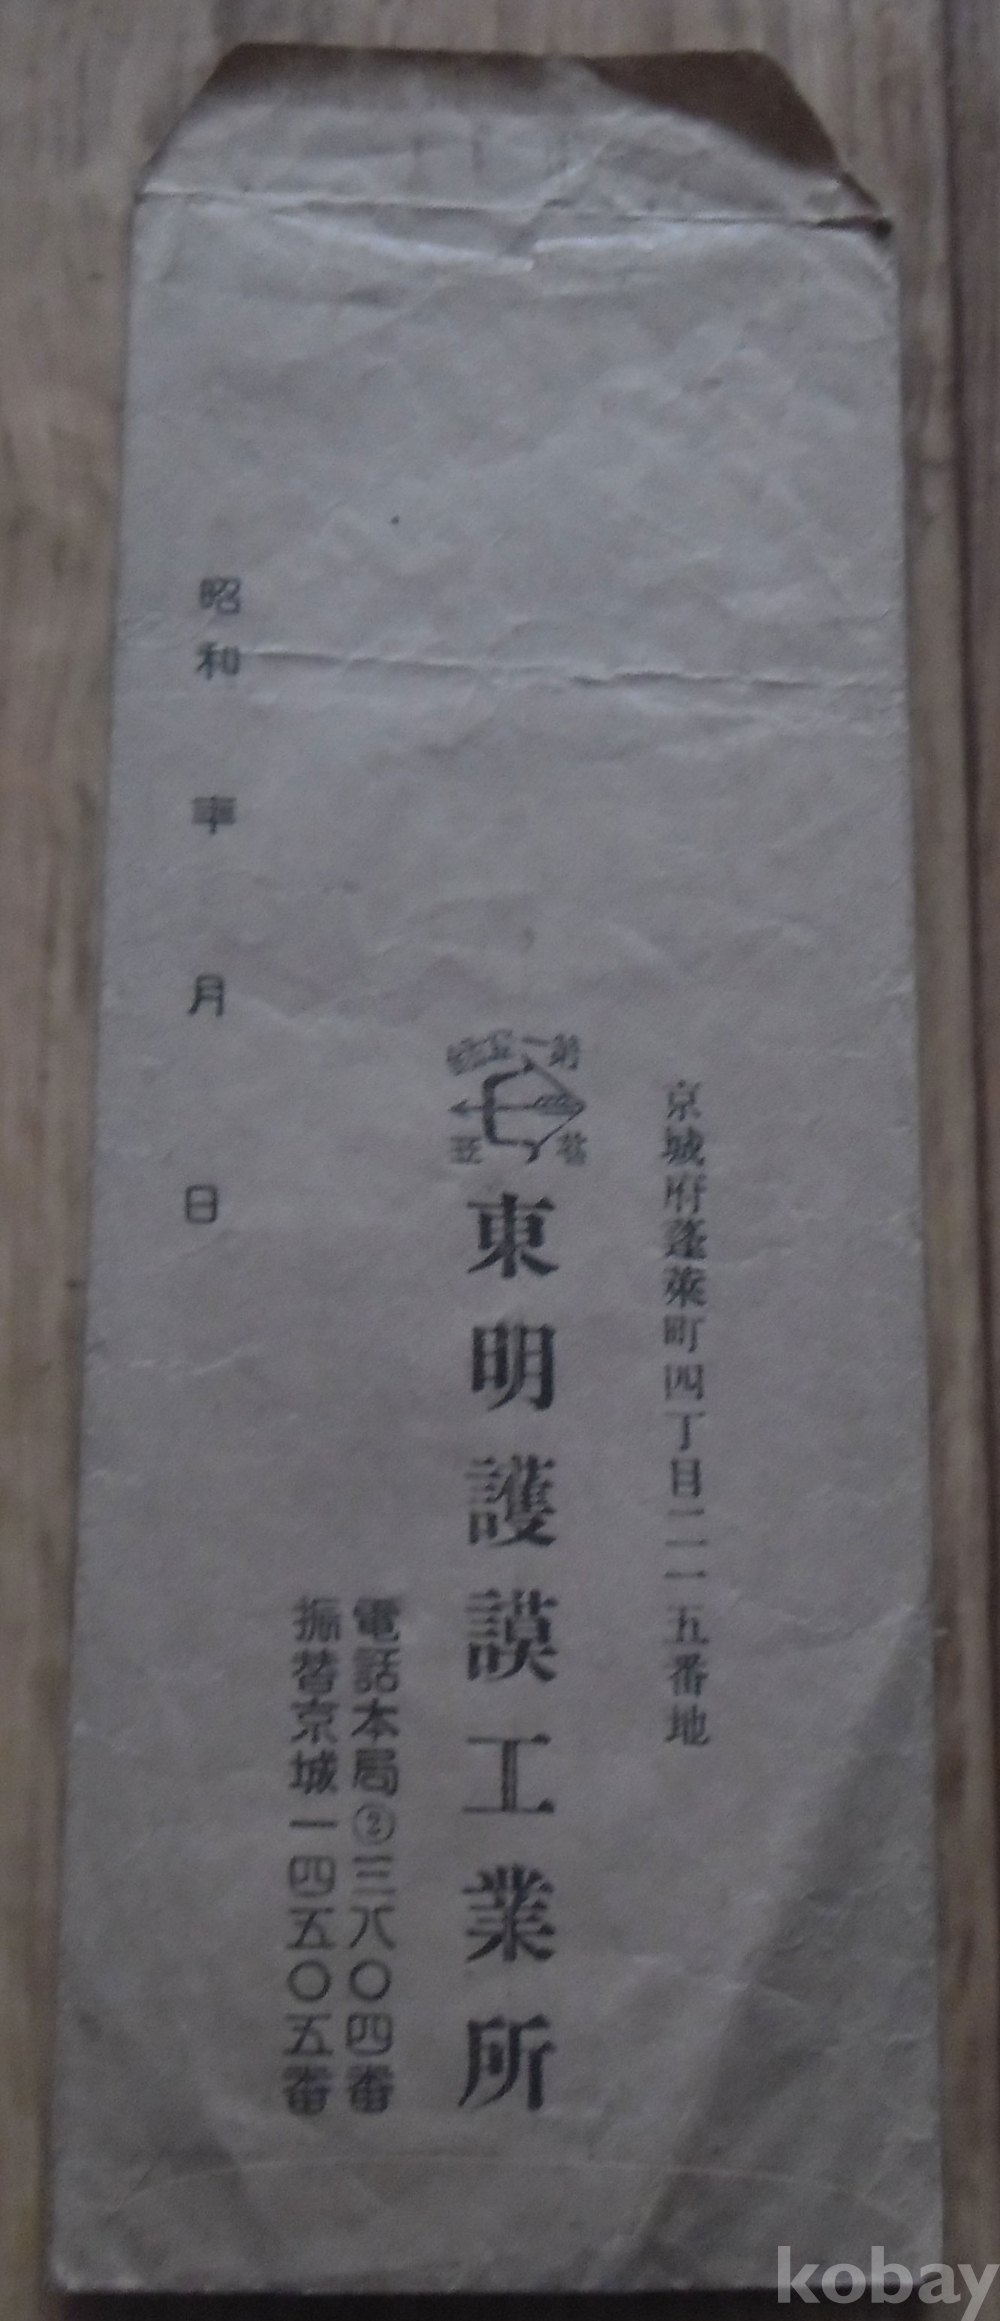 京城府蓬萊町四丁目二一五番地
東明護謨工業所
電話本局②三八〇四番
振替京城一四五〇五番
昭和 年 月 日
kobay